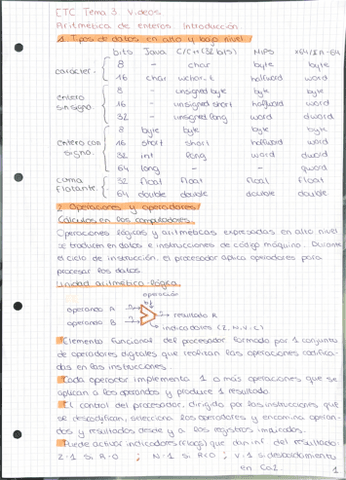 ETC Tema 3. Videos
Aritmética de enteros. Introducción.
1. Tipos de datos en alto y bajo nivel
bits Java C/C++(32 bits) MIPS x64/IA-64
carácter. 8 - char byte byte
16 char wchar_t halfword word
entero sin signo. 8 - unsigned byte byte byte
16 - unsigned short halfword word
32 - unsigned long word dword
entero con signo. 8 byte byte byte byte
16 short short halfword word
32 int long word dword
64 long - - qword
coma flotante. 32 float float float float
64 double double double double
2. Operaciones y operadores.
Cálculos en los computadores.
Operaciones lógicas y aritméticas expresadas en alto nivel
se traducen en datos e instrucciones de código máquina. Durante
el ciclo de instrucción, el procesador aplica operadores para
procesar los datos.
Unidad aritmético-lógica.
operación
operando A
resultado R
operando B
indicadores (Z, N, V, C)
Elemento funcional del procesador formado por 1 conjunto
de operadores digitales que realizan las operaciones codifica-
das en las instrucciones.
Cada operador implementa 1 o más operaciones que se
aplican a los operandos y produce 1 resultado.
El control del procesador, dirigido por las instrucciones que
se descodifican, selecciona los operadores y encamina operan-
dos y resultados desde y a los registros implicados.
Puede activar indicadores (flags) que dan inf. del resultado:
Z=1 si R=0 ; N=1 si R<0 ; V=1 si desbordamiento
en Ca2.
1